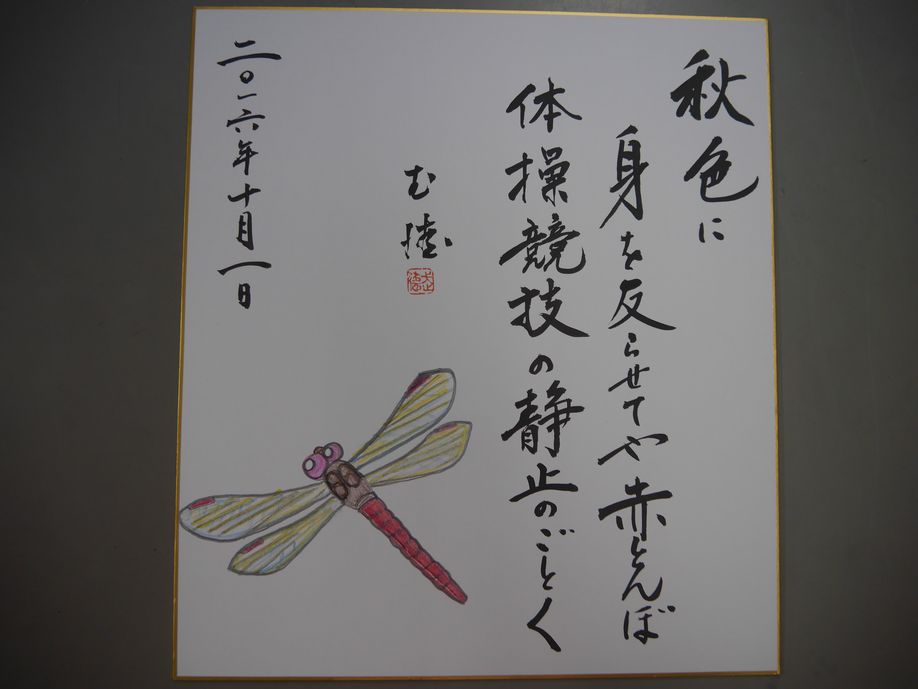 秋色に
身を反らせてや赤とんぼ
体操競技の静止のごとく
二〇一六年十月一日